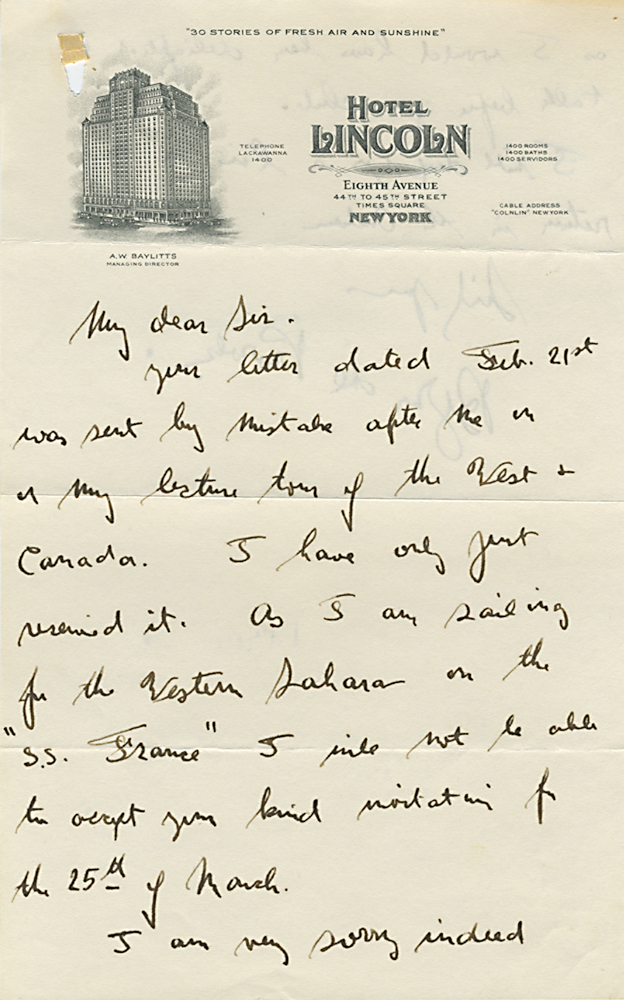 "30 STORIES OF FRESH AIR AND SUNSHINE"
TELEPHONE
LACKAWANNA
1400
HOTEL
LINCOLN
EIGHTH AVENUE
44TH TO 45TH STREET
TIMES SQUARE
NEW YORK
1400 ROOMS
1400 BATHS
1400 SERVIDORS
CABLE ADDRESS
"COLNLIN" NEWYORK
A.W. BAYLITTS
MANAGING DIRECTOR
My dear Sir.
your letter dated Feb. 21st
was sent by mistake after me in
my lecture tour of the West &
Canada. I have only just
received it. As I am sailing
for the Western Sahara on the
"S.S. France" I will not be able
to accept your kind invitation for
the 25th of March.
I am very sorry indeed